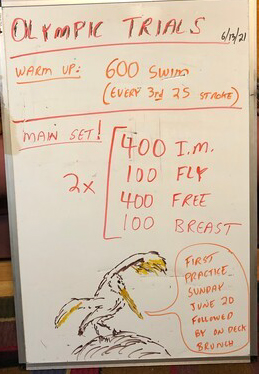 OLYMPIC TRIALS 6/13/21
WARM UP: 600 SWIM
(EVERY 3rd 25 STROKE)
MAIN SET!
400 I.M.
100 FLY
2x
400 FREE
100 BREAST
FIRST
PRACTICE
SUNDAY
JUNE 20
FOLLOWED
BY ON DECK
BRUNCH